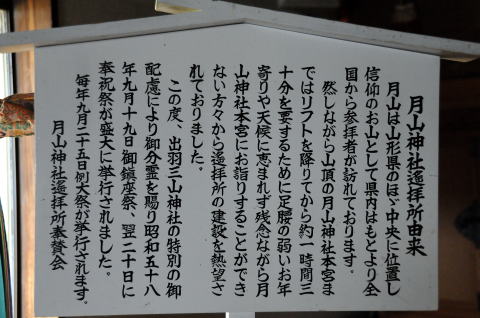 月山神社遙拝所由来
月山は山形県のほゞ中央に位置し
信仰のお山として県内はもとより全
国から参拝者が訪れております。
然しながら山頂の月山神社本宮ま
ではリフトを降りてから約一時間三
十分を要するために足腰の弱いお年
寄りや天候に恵まれず残念ながら月
山神社本宮にお詣りすることができ
ない方々から遙拝所の建設を熱望さ
れておりました。
この度、出羽三山神社の特別の御
配慮により御分霊を賜り昭和五十八
年九月十九日御鎮座祭、翌二十日に
奉祝祭が盛大に挙行されました。
毎年九月二十五日例大祭が挙行されます。
月山神社遙拝所奉賛会